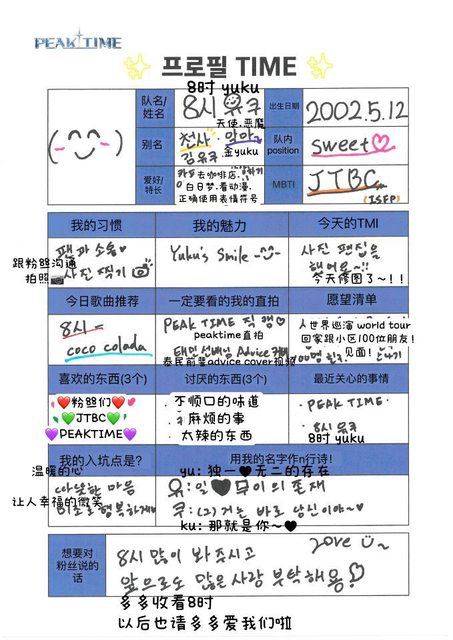 PEAK TIME
프로필 TIME
8时 yuku
队名/
姓名
8시 유쿠
出生日期
2002.5.12
天使.恶魔
别名
천사. 악마
김유쿠
金yuku
队内
position
sweet♡
爱好/
特长
去咖啡店.
白日梦.看动漫.
正确使用表情符号
MBTI
JTBC
(ISFP)
我的习惯
我的魅力
今天的TMI
팬과 소통
跟粉丝沟通
사진 찍기
拍照
Yuku's Smile
사진 편집을
했어요~!!
今天修图了~!!
今日歌曲推荐
一定要看的我的直拍
愿望清单
8시 -
coco colada
PEAK TIME 직캠♡
peaktime直拍
태민 선배님 Advice 커버
泰民前辈advice cover视频
人世界巡演 world tour
回家跟小区100位朋友!
见面!
喜欢的东西(3个)
讨厌的东西(3个)
最近关心的事情
❤粉丝们❤
💚JTBC💚
💜PEAKTIME💜
· 不顺口的味道
· 麻烦的事
· 太辣的东西
· PEAK TIME
· 8시 유쿠
8时 yuku
我的入坑点是?
用我的名字作n行诗!
温暖的心
따뜻한 마음
让人幸福的微笑
미소로 행복하게
yu: 独一🖤无二的存在
유: 일🖤무이의 존재
쿠: (그)거는 바로 당신이야~♥
ku: 那就是你~🖤
想要对
粉丝说的
话
8시 많이 봐주시고
love
앞으로도 많은 사랑 부탁해용!
多多收看8时
以后也请多多爱我们啦